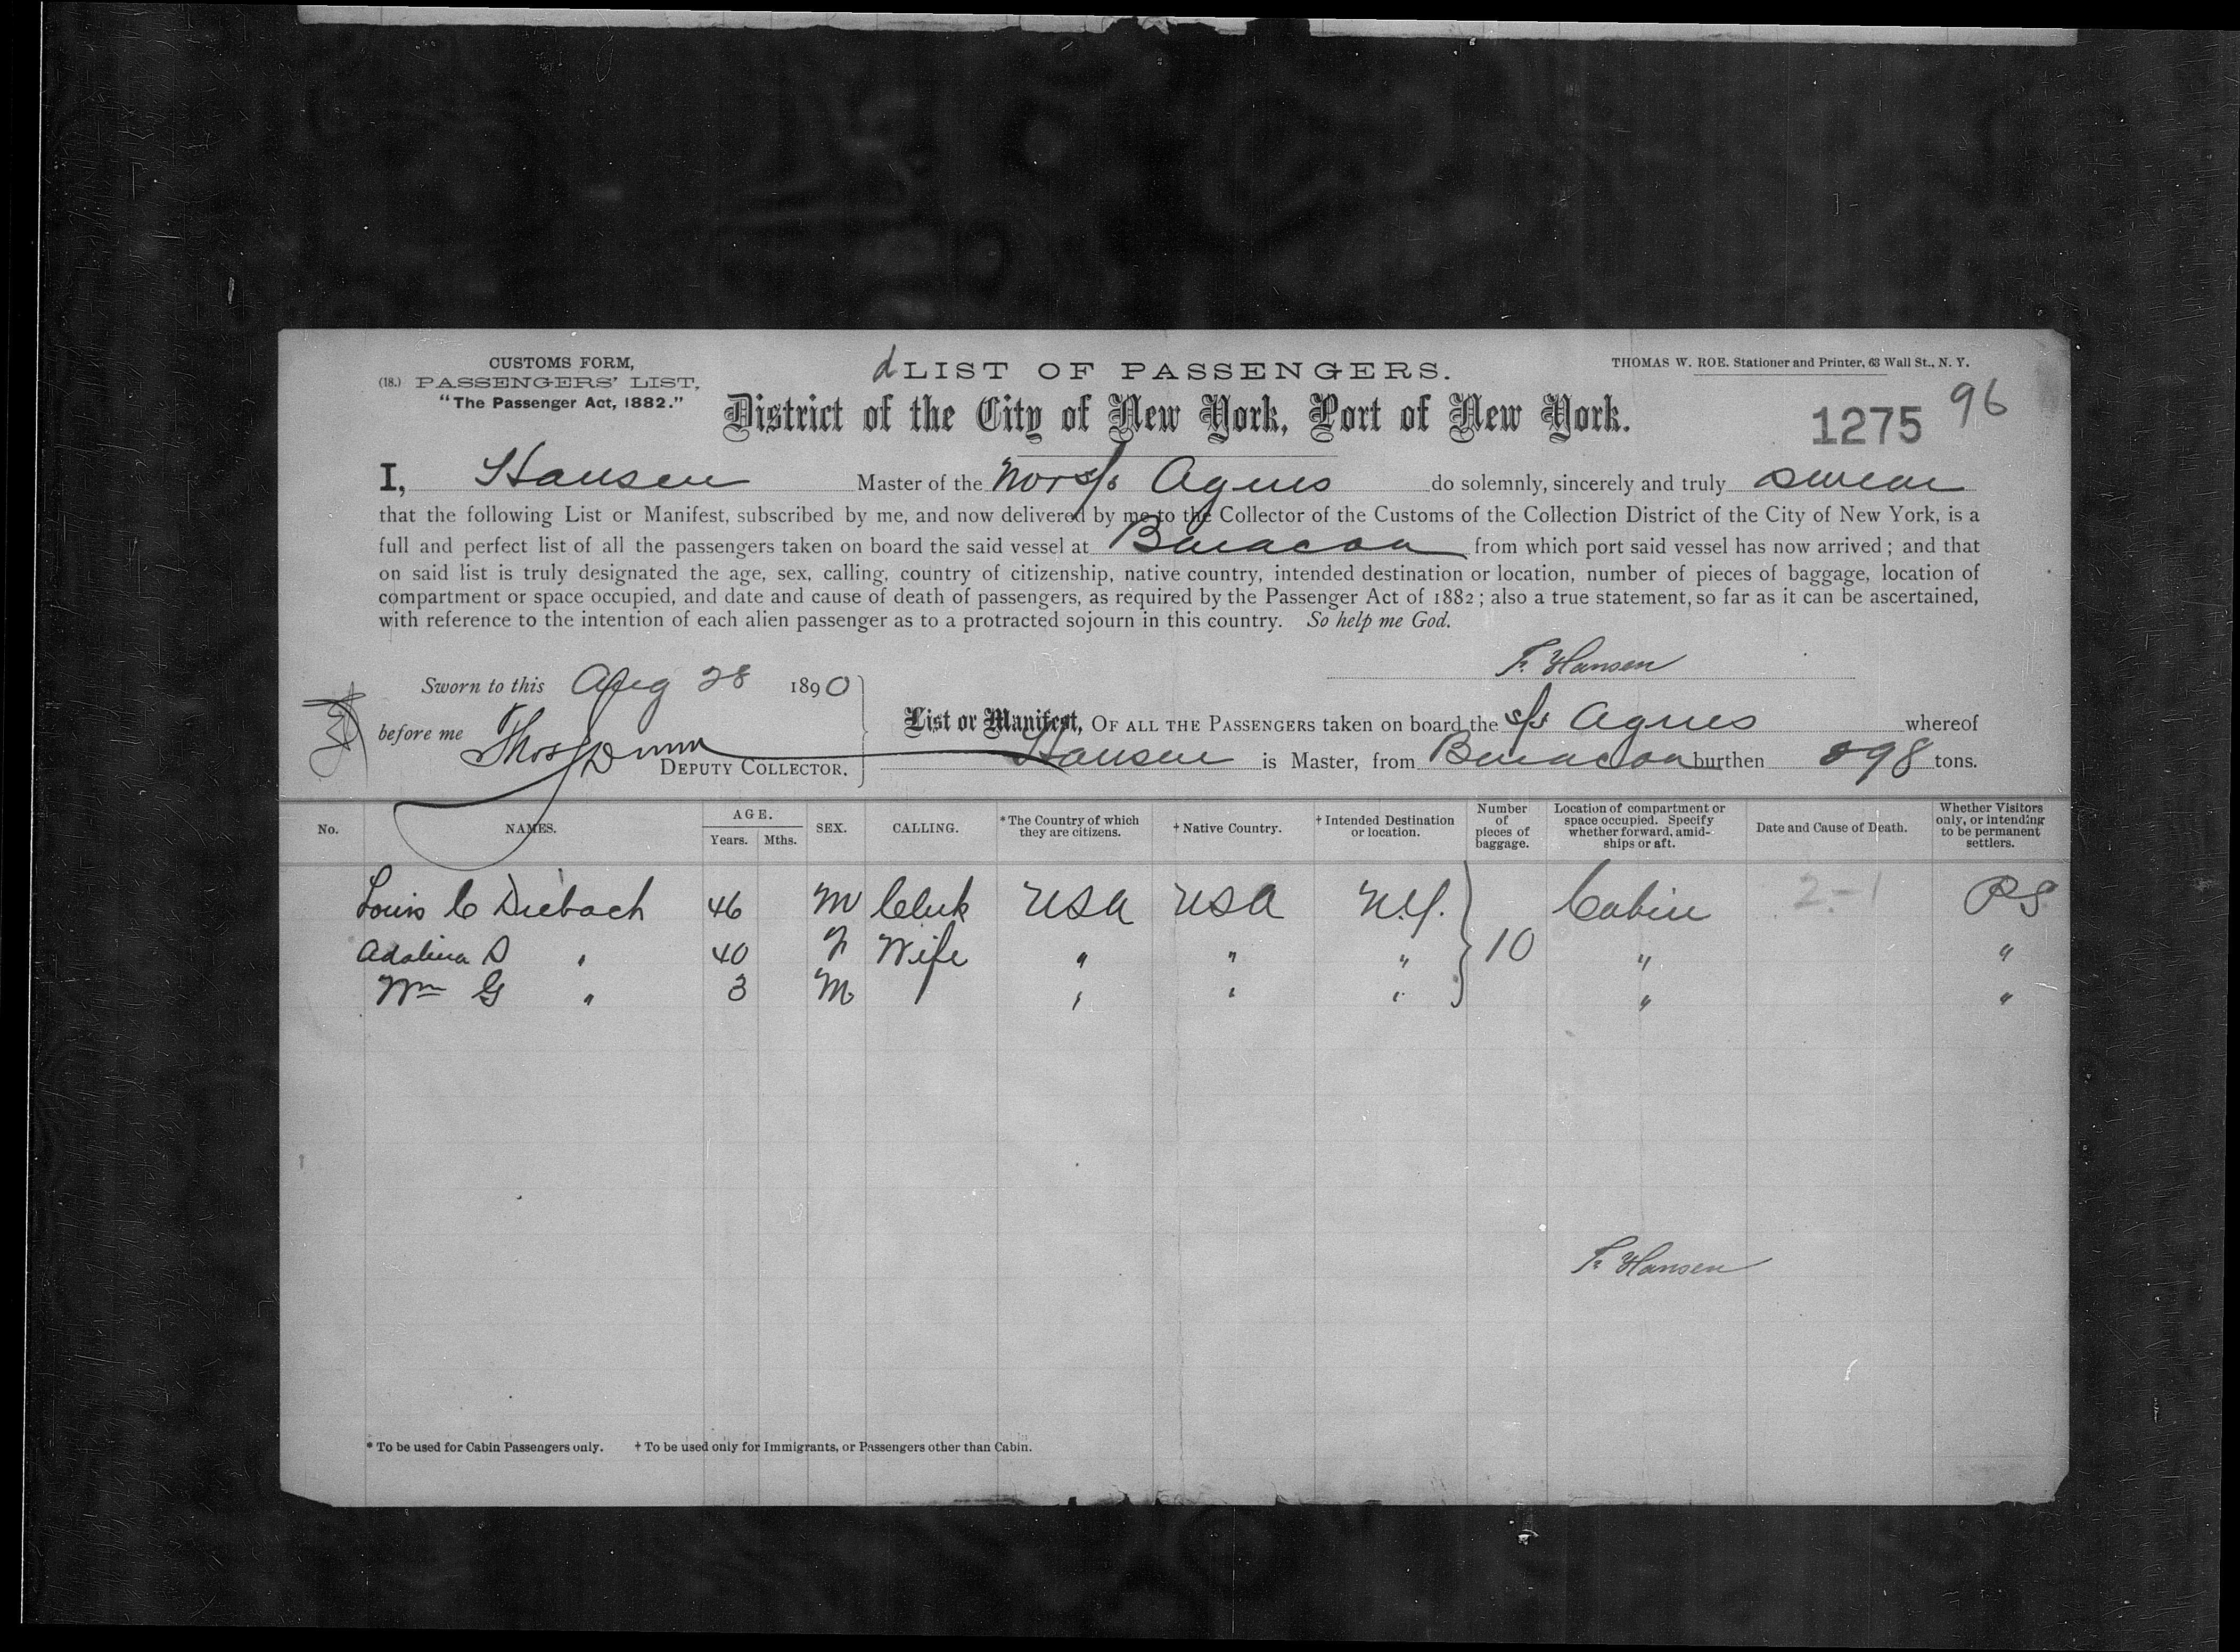 CUSTOMS FORM,
(18.) PASSENGERS' LIST,
"The Passenger Act, 1882."
d LIST OF PASSENGERS.
District of the City of New York, Port of New York.
THOMAS W. ROE. Stationer and Printer, 63 Wall St., N. Y.
1275 96
I, Hansen Master of the Nor s/s Agnes do solemnly, sincerely and truly swear
that the following List or Manifest, subscribed by me, and now delivered by me to the Collector of the Customs of the Collection District of the City of New York, is a
full and perfect list of all the passengers taken on board the said vessel at Baracoa from which port said vessel has now arrived; and that
on said list is truly designated the age, sex, calling, country of citizenship, native country, intended destination or location, number of pieces of baggage, location of
compartment or space occupied, and date and cause of death of passengers, as required by the Passenger Act of 1882; also a true statement, so far as it can be ascertained,
with reference to the intention of each alien passenger as to a protracted sojourn in this country. So help me God.
F. Hansen
Sworn to this Aug 28 1890
before me Thos Dunn
DEPUTY COLLECTOR.
List or Manifest, OF ALL THE PASSENGERS taken on board the s/s Agnes whereof
Hansen is Master, from Baracoa burthen 898 tons.
No. NAMES. AGE. Years. Mths. SEX. CALLING. * The Country of which they are citizens. † Native Country. † Intended Destination or location. Number of pieces of baggage. Location of compartment or space occupied. Specify whether forward, amid-ships or aft. Date and Cause of Death. Whether Visitors only, or intending to be permanent settlers.
Louis C Diebach 46 M Clerk USA USA N.Y. Cabin 2-1 PS
Adalina D " 40 F Wife " " " 10 " "
Wm G " 3 M " " " " "
F. Hansen
* To be used for Cabin Passengers only. † To be used only for Immigrants, or Passengers other than Cabin.